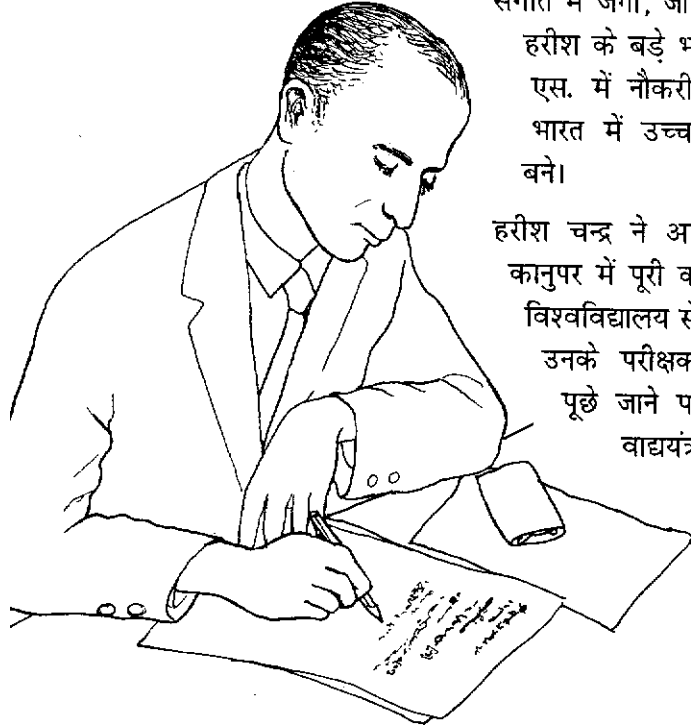 संगीत में जगी, जो
हरीश के बड़े भ
एस. में नौकरी
भारत में उच्च
बने।
हरीश चन्द्र ने अ
कानुपर में पूरी क
विश्वविद्यालय से
उनके परीक्षक
पूछे जाने प
वाद्ययंत्र